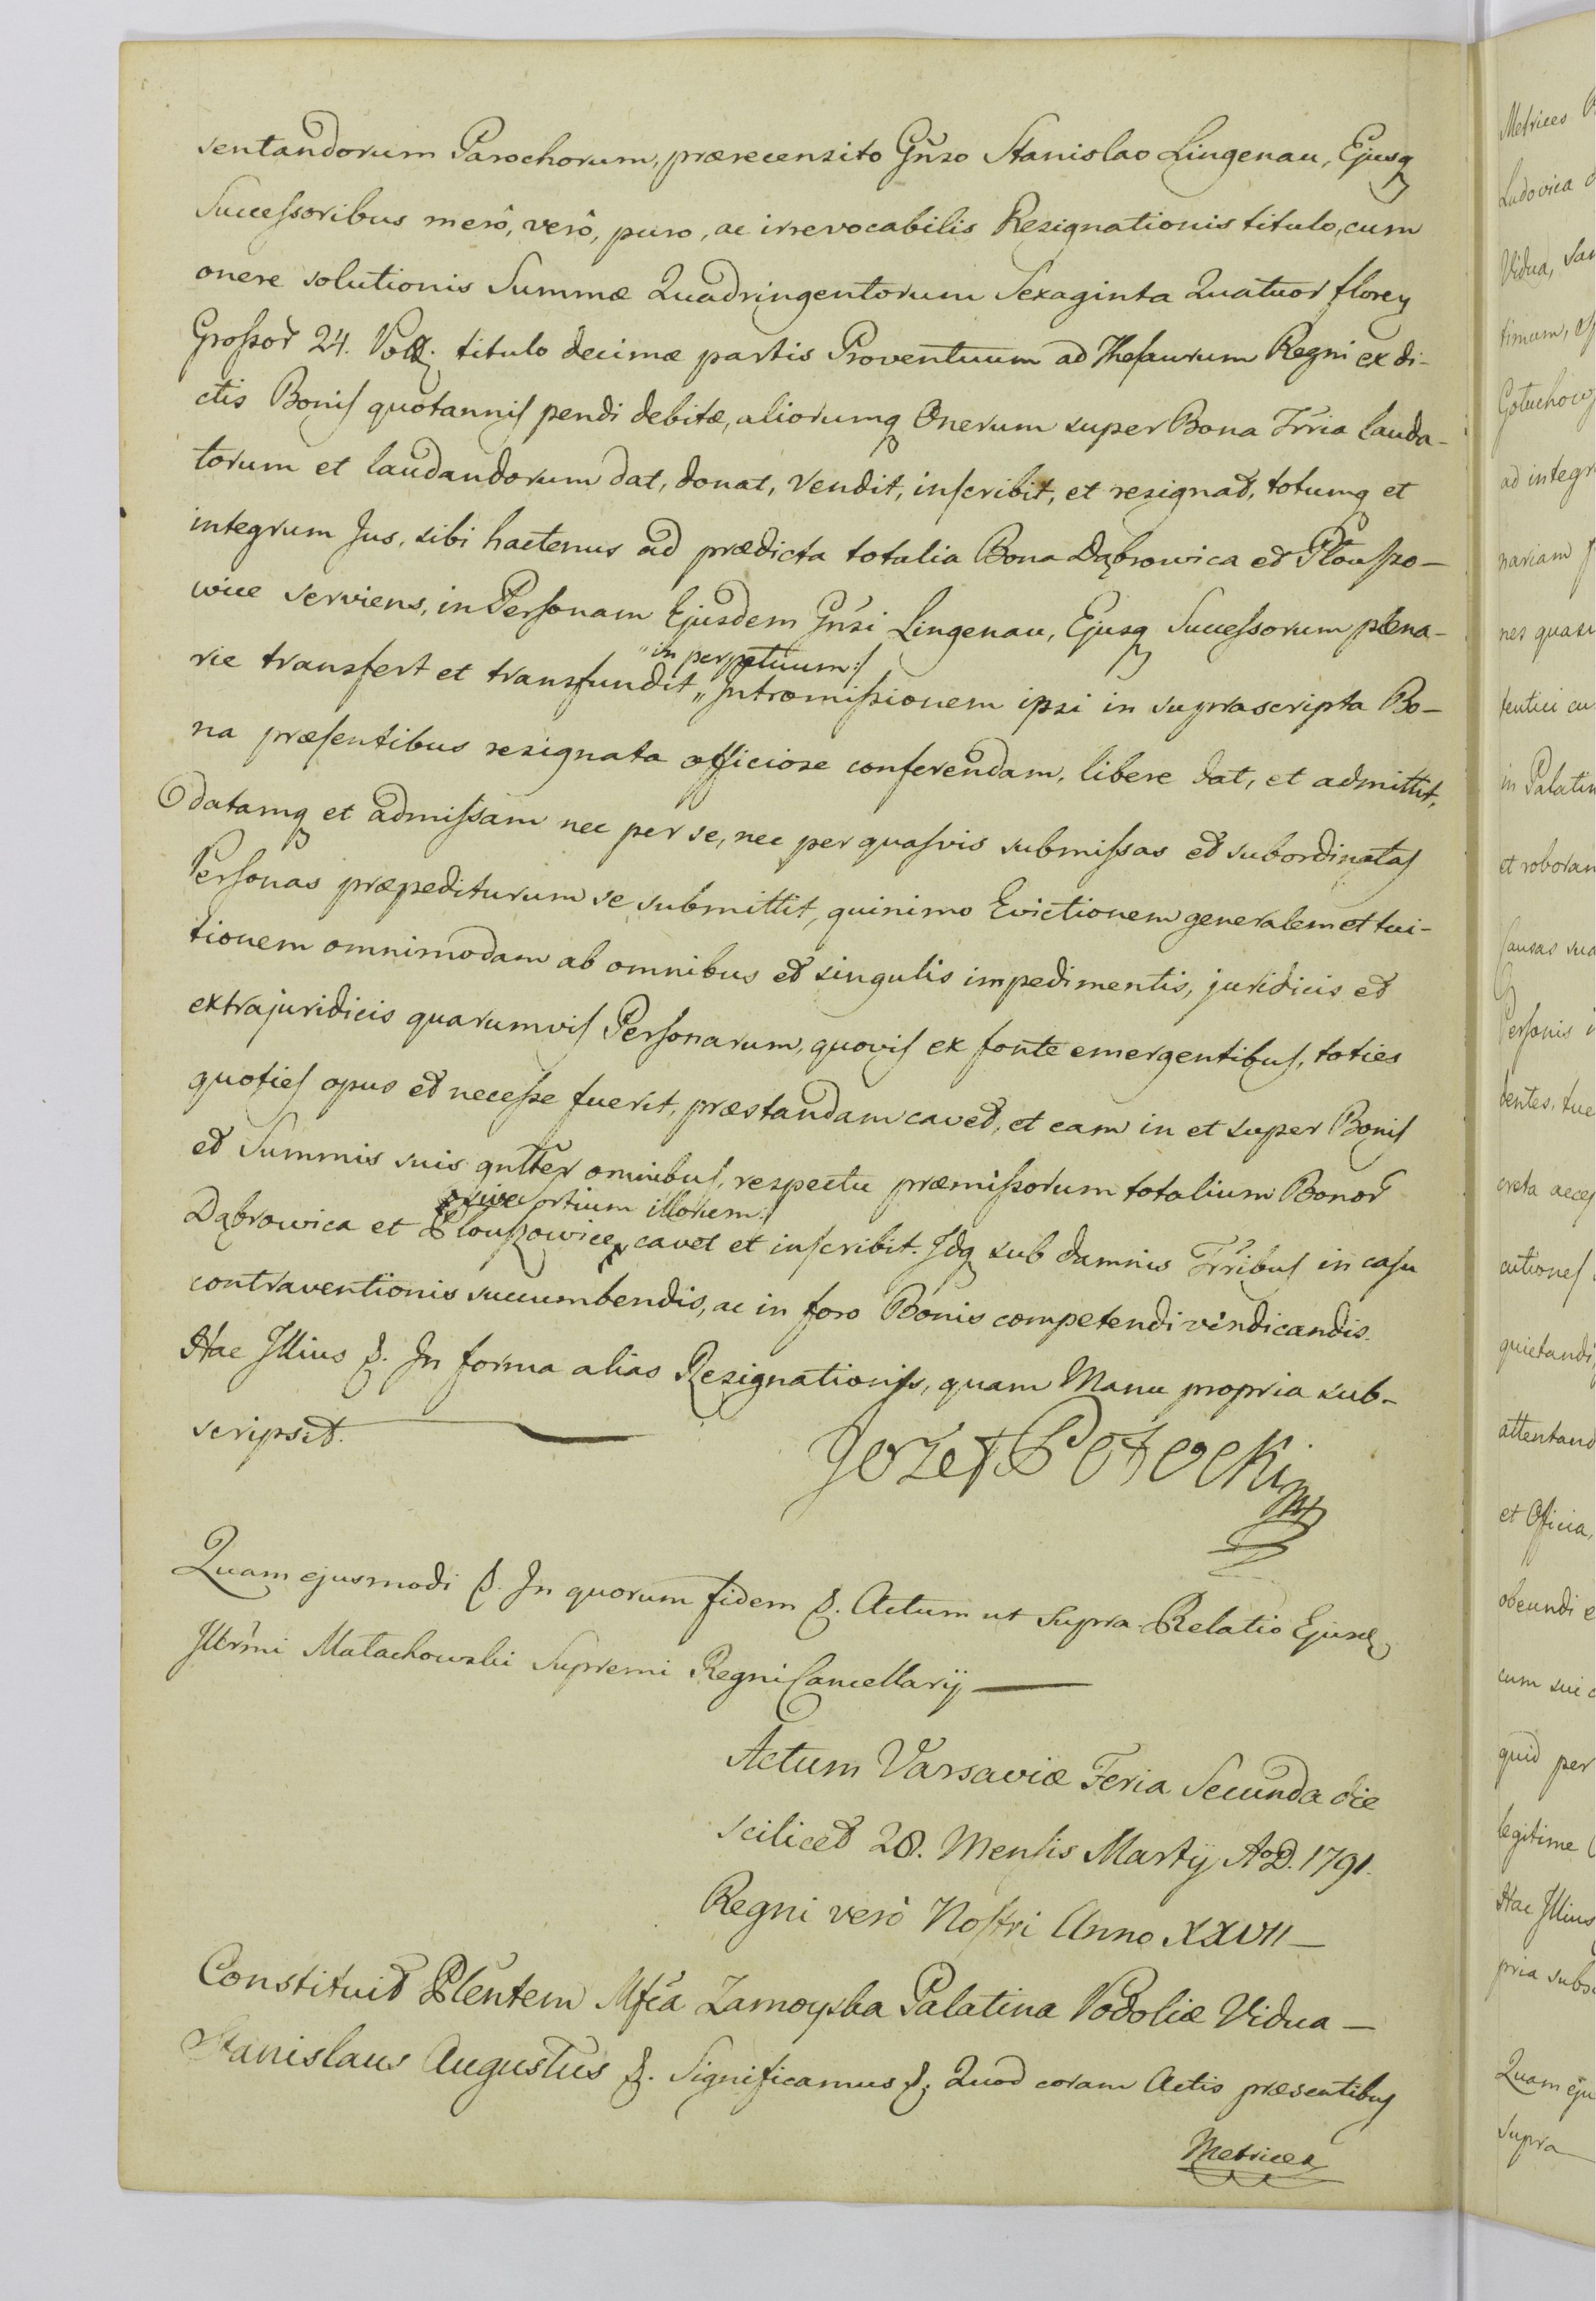 sentandorum Parochorum, præcensito Gñso Stanislao Lingenau, Ejusq
Successoribus merô, verô, puro, ac irrevocabilis Resignationis titulo, cum
onere solutionis Summæ Quadringentorum Sexaginta Quatuor floren
Grossor 24. Poll. titulo decimæ partis Proventuum ad Thesaurum Regni ex di-
ctis Bonis quotannis pendi debitæ, aliorumq Onerum super Bona Irria lauda-
torum et laudandorum dat, donat, vendit, inscribit, et resignat, totumq et
integrum Jus, sibi hactenus ad prædicta totalia Bona Dąbrowica et Płouszo-
wice serviens, in Personam Ejusdem Gñsi Lingenau, Ejusq Successorum plena-
in perpetuum:/
rie transfert et transfundit „ Intromissionem ipsi in suprascripta Bo-
na præsentibus resignata officiose conferendam, libere dat, et admittit,
datamq et admissam nec per se, nec per quasvis submissas et subordinatas
Personas præpediturum se submittit, quinimo Evictionem generalem et tui-
tionem omnimodam ab omnibus et singulis impedimentis, juridicis et
extrajuridicis quarumvis Personarum, quovis ex fonte emergentibus, toties
quoties opus et necesse fuerit, præstandam cavet, et eam in et super Bonis
et Summis suis gnlter omnibus, respectu præmissorum totalium Bonor
sive sortium illorum:/
Dąbrowica et Płouszowice, cavet et inscribit. Idq sub damnis Irribus in casu
contraventionis succumbendis, ac in foro Bonis competendi vindicandis.
Hac Illius &. In forma alias Resignationis, quam Manu propria sub-
scripsit.
Jozef Potocki mp
Quam ejusmodi &. In quorum fidem &. Actum ut supra Relatio Ejusd
Illrmi Małachowski Supremi Regni Cancellarij
Actum Varsaviæ Feria Secunda die
scilicet 28. Mensis Martij AoD. 1791.
Regni verò Nostri Anno XXVII
Constituit Plentem Mfca Zamoyska Palatina Podoliæ Vidua
Stanislaus Augustus &. Significamus &. Quod coram Actis præsentibus
Metrices
Metrices
Ludovica
Vidua,
timum,
ad integr
nariam
nes quasi
in Palatin
et roboran
Causas sua
Personis
creta accep
cutiones
quietandi
attentand
et Officia,
obeundi
cum sui
quid per
legitime
Hac Illius
pria subs
Quam eju
supra